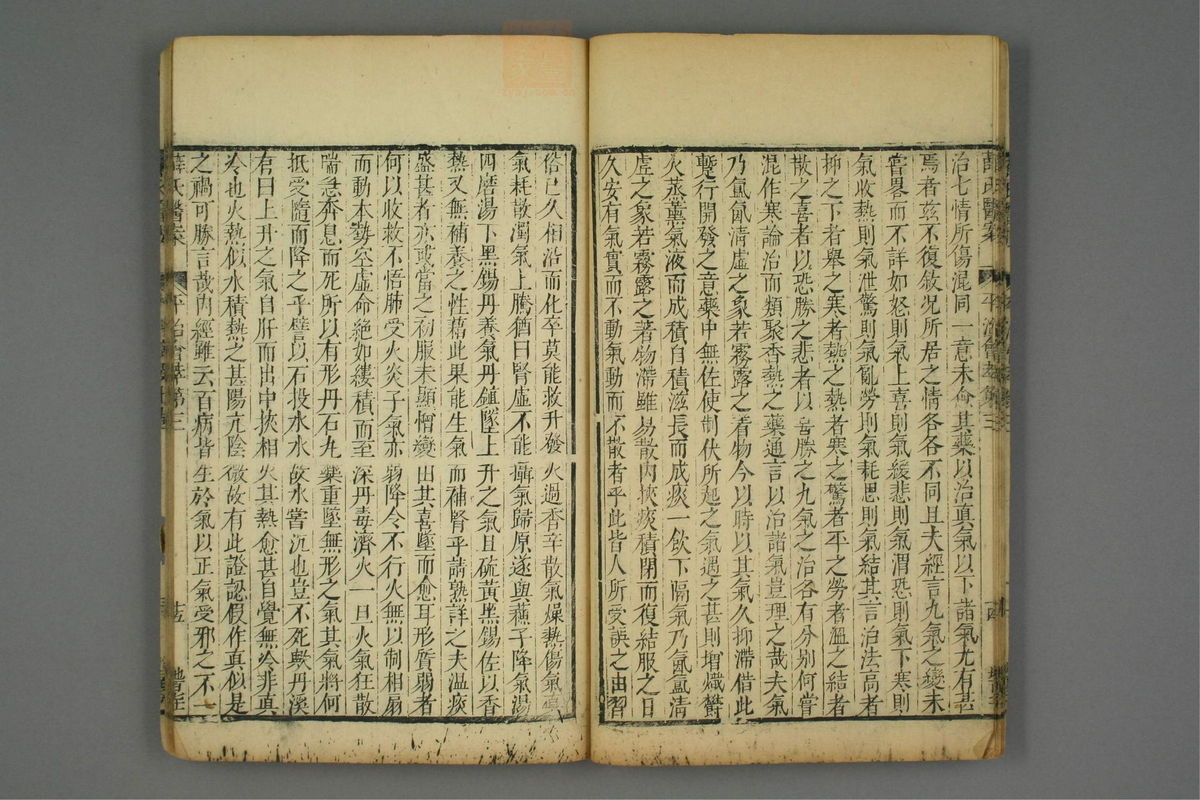 治七情所傷混同一意未會其藥以治真氣以下諸氣尤有甚
焉者茲不復敘况所居之情各各不同且夫經言九氣之變未
嘗畧而不詳如怒則氣上喜則氣緩悲則氣消恐則氣下寒則
氣收熱則氣泄驚則氣亂勞則氣耗思則氣結其言治法高者
抑之下者舉之寒者熱之熱者寒之驚者平之勞者溫之結者
散之喜者以恐勝之悲者以喜勝之九氣之治各有分别何嘗
混作寒論治而類聚香熱之藥通言以治諸氣豈理之哉夫氣
乃氤氳清虛之象若霧露之着物今以時以其氣久抑滯借此
暫行開發之意藥中無佐使制伏所起之氣過之甚則增熾欝
火蒸薰氣液而成積自積滋長而成痰一飲下膈氣乃氤氳清
虛之象若霧露之著物滯雖易散內挾痰積閉而復結服之日
久安有氣實而不動氣動而不散者乎此皆人所受誤之由習
俗已久相沿而化卒莫能救升發火過香辛散氣燥熱傷氣
氣耗散濁氣上騰猶曰腎虛不能攝氣歸原遂與蘇子降氣湯
四磨湯下黑錫丹養氣丹鎮墜上升之氣且硫黃黑錫佐以香
熱又無補養之性藉此果能生氣而補腎乎請熟詳之夫溫痰
盛甚者亦或當之初服未顯憎變由其喜墜而愈耳形質弱者
何以收救不悟肺受火炎子氣亦弱降令不行火無以制相扇
而動本勢空虛命絕如縷積而至深丹毒濟火一旦火氣狂散
喘急奔息而死所以有形丹石丸藥重墜無形之氣其氣將何
抵受隨而降之乎譬以石投水水故水嘗沉也豈不死歟丹溪
有曰上升之氣自肝而出中挾相火其熱愈甚自覺無冷非真
冷也火熱似水積熱之甚陽亢陰微故有此證認假作真似是
之禍可勝言哉內經雖云百病皆生於氣以正氣受邪之不一
薛氏醫案
平治會萃第三